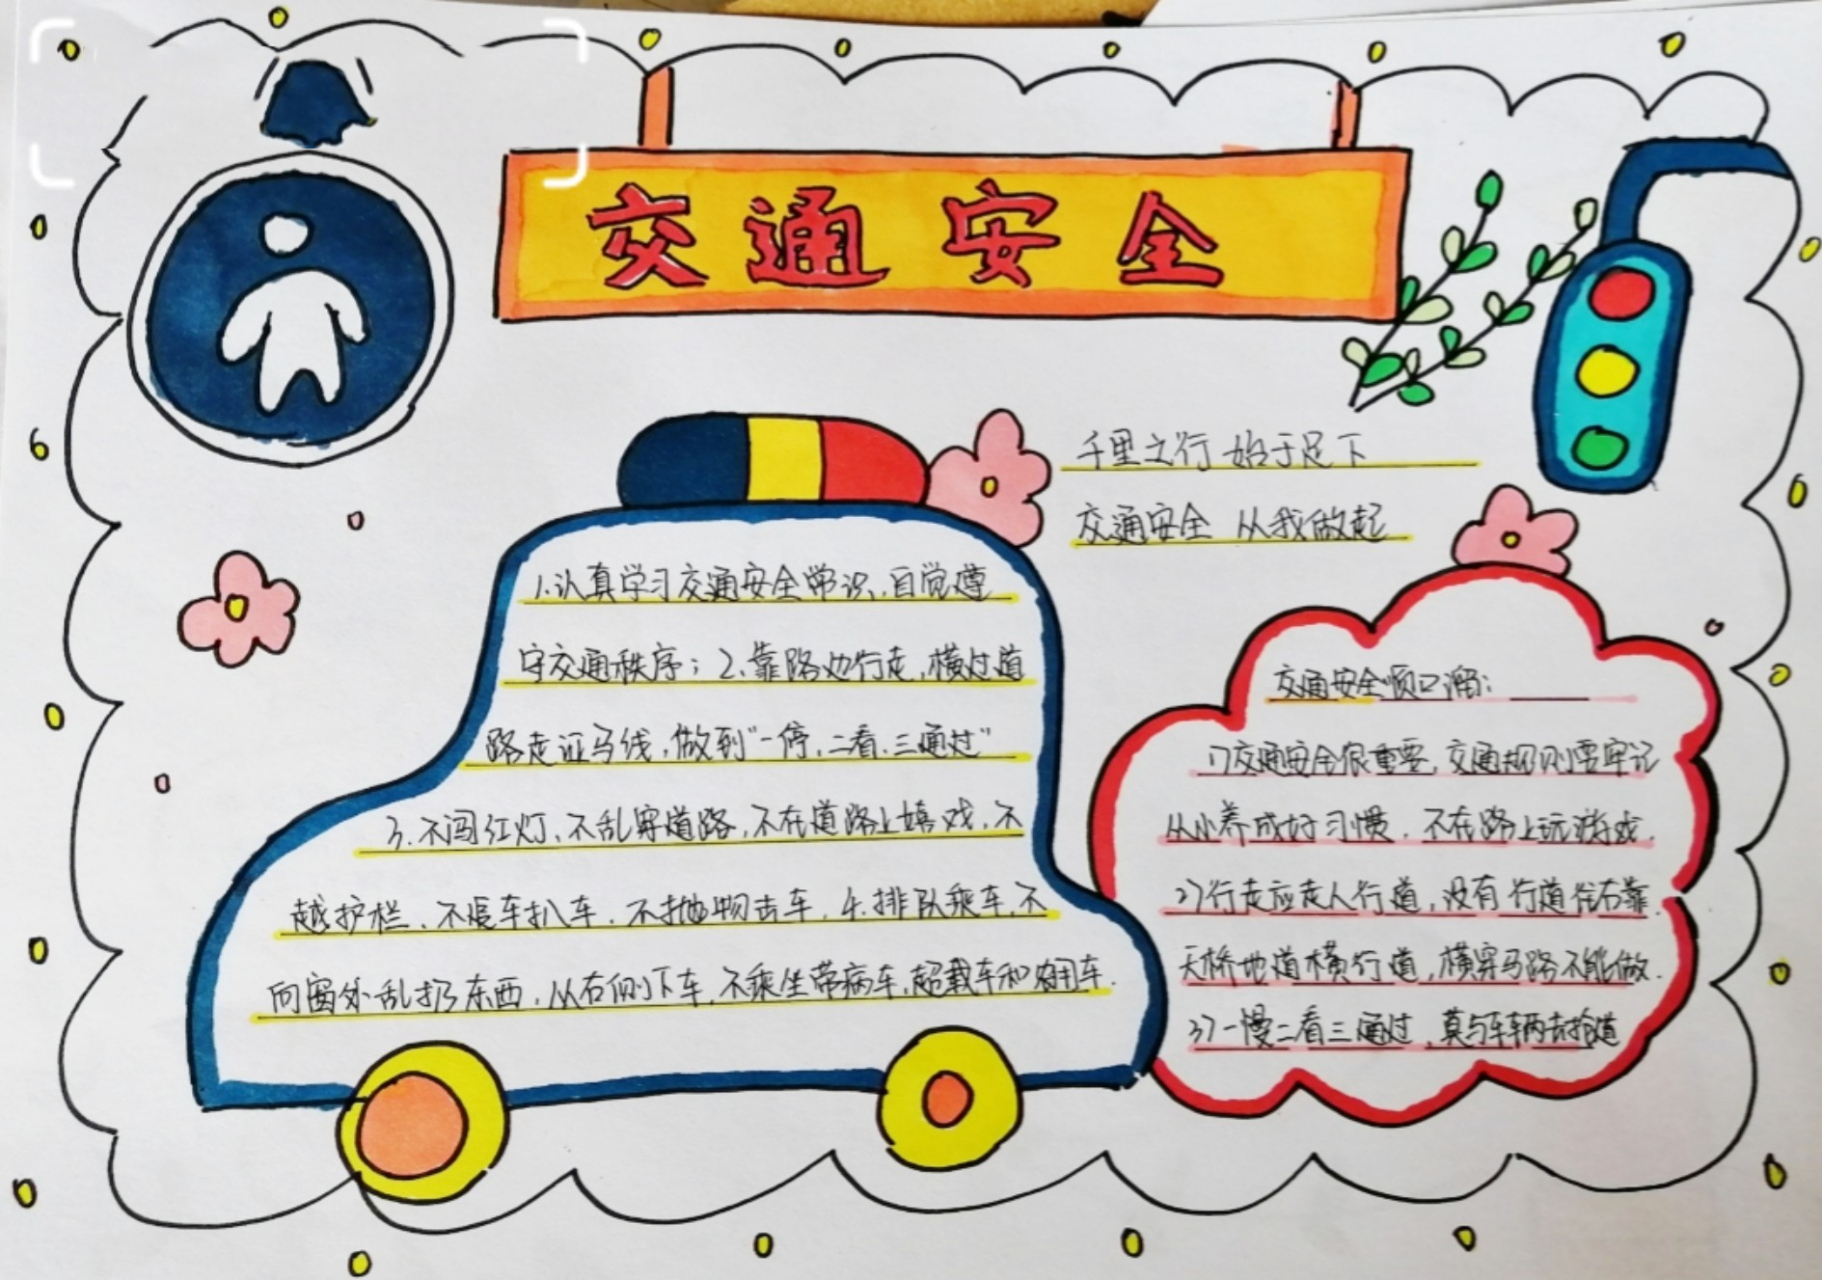 交通安全
千里之行 始于足下
交通安全 从我做起
1.认真学习交通安全常识,自觉遵
守交通秩序；2.靠路边行走,横过道
路走证马线,做到"一停,二看,三通过"
3.不闯红灯、不乱穿道路,不在道路上嬉戏,不
越护栏、不爬车扒车,不抛物击车,4.排队乘车,不
向窗外乱扔东西,从右侧下车,不乘坐带病车,超载车和车.
交通安全顺口溜:
1)交通安全很重要,交通规则要牢记
从小养成好习惯,不在路上玩游戏.
2)行走应走人行道,没有行道往右靠.
天桥地道横行道,横穿马路不能做.
3)一慢二看三通过,莫与车辆去抢道